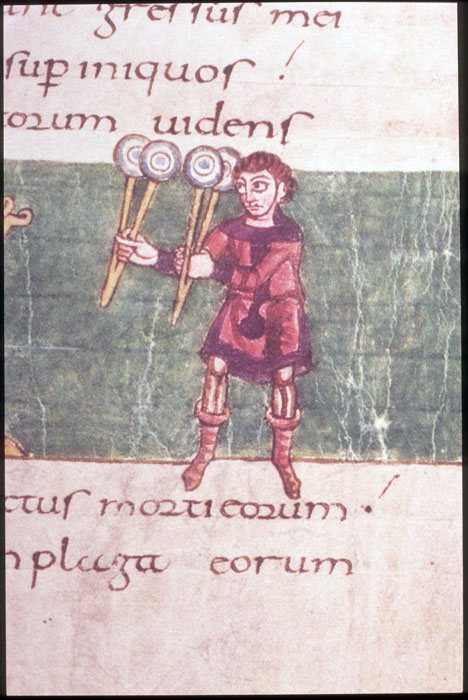 unt gressus mei
sup iniquos
torum uidens
ctus morti eorum
n plaga eorum